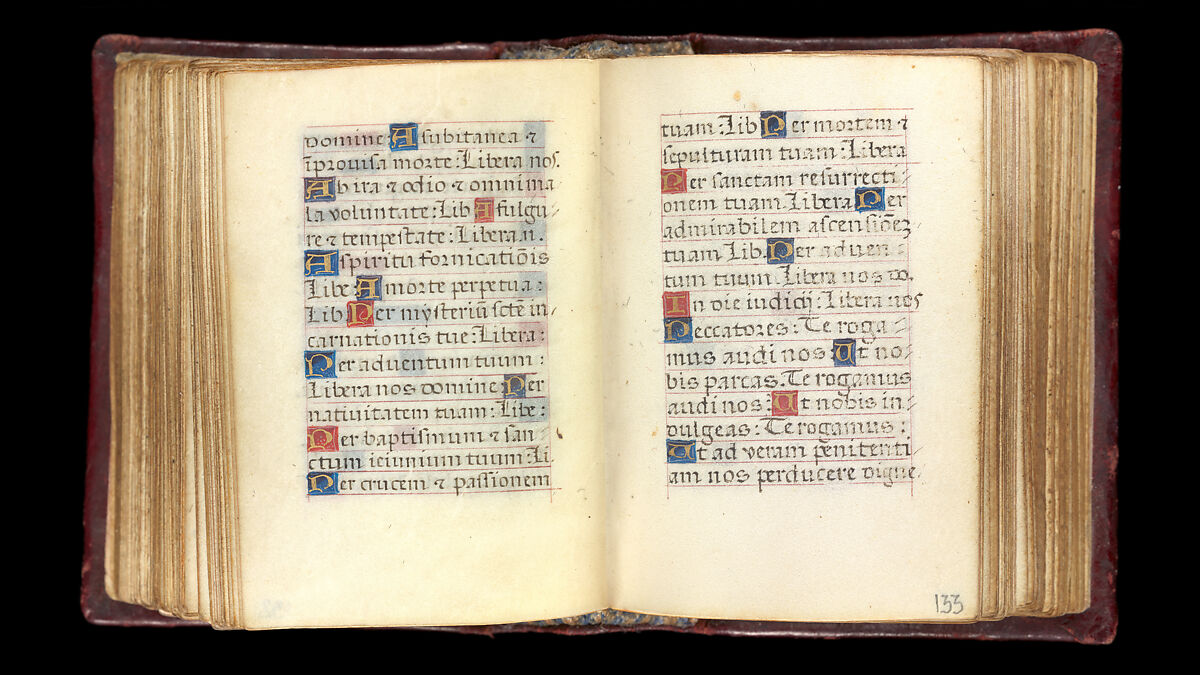 domine: A subitanea ⁊
ĩprouisa morte: Libera nos.
Ab ira ⁊ odio ⁊ omni ma
la voluntate: Lib A fulgu
re ⁊ tempestate: Libera.n.
A spiritu fornicatiōis
Libe: A morte perpetua:
Lib Per mysteriū sctē in-
carnationis tue: Libera:
Per aduentum tuum:
Libera nos domine Per
natiuitatem tuam: Libe:
Per baptismum ⁊ san-
ctum ieiunium tuum: Li.
Per crucem ⁊ passionem
tuam: Lib Per mortem ⁊
sepulturam tuam: Libera
Per sanctam resurrecti-
onem tuam Libera Per
admirabilem ascensiōeꝫ
tuam Lib. Per aduen-
tum tuum Libera nos do.
In die iudicij: Libera nos
Peccatores: Te roga-
mus audi nos: Ut no-
bis parcas. Te rogamus
audi nos: Ut nobis in-
dulgeas: Te rogamus:
Ut ad veram penitenti-
am nos perducere digne.
133